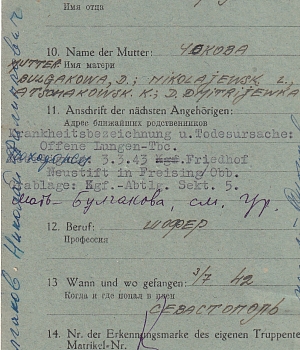 Имя отца
10. Name der Mutter: ЧОКОВА
Имя матери
MUTTER:
BULGAKOWA, D.; MIKOLAJEWSK L.,
ATSCHAKOWSK. K; D. DMITRIJEWKA
11. Anschrift der nächsten Angehörigen:
Адрес ближайших родственников
Krankheitsbezeichnung u. Todesursache:
Offene Lungen-Tbc.
3.3.43 Kgf.Friedhof
Neustift in Freising/Obb.
Grablage: Kgf.-Abtlg. Sekt. 5.
Мать- Булгакова, см.
12. Beruf: ШОФЕР
Профессия
13 Wann und wo gefangen: 3/7 42
Когда и где попал в плен
СЕВАСТОПОЛЬ
14. Nr. der Erkennungsmarke des eigenen Truppente
Matrikel-Nr.
Николай